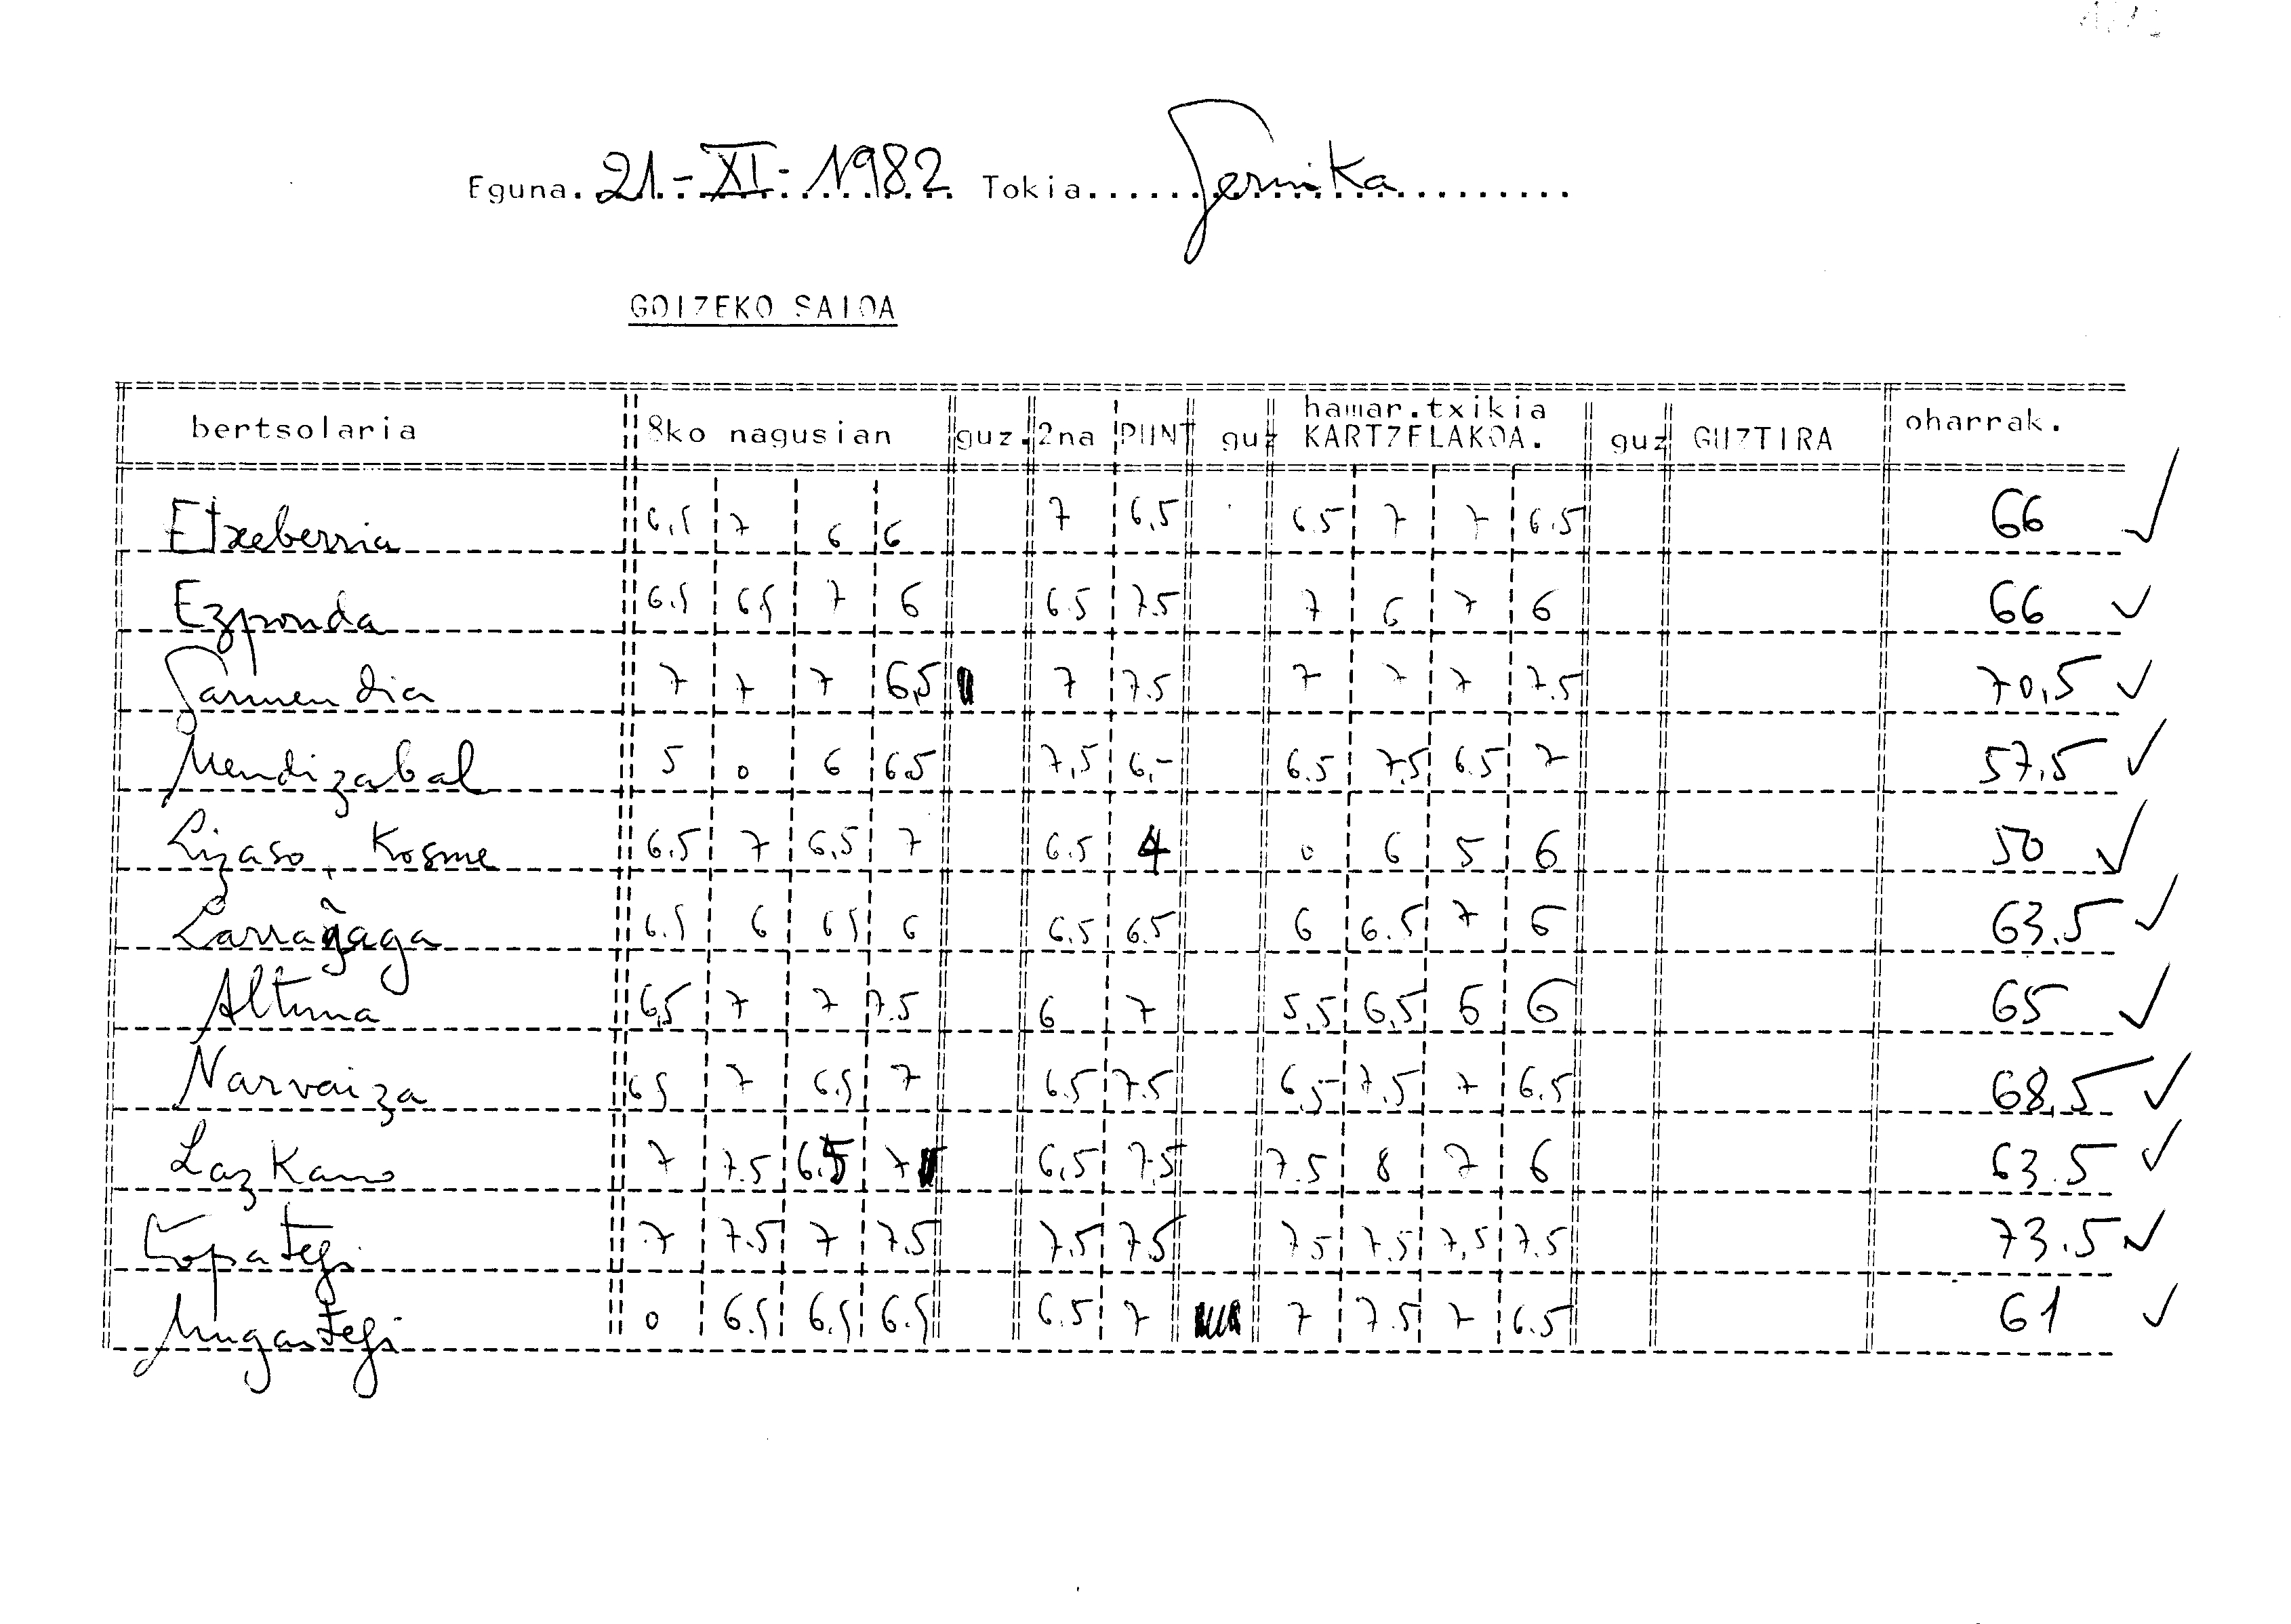 Eguna. 21-XI-1982 Tokia Gernika
GOIZEKO SAIOA
bertsolaria 8ko nagusian guz. 2na PUNT guz hamar.txikia KARTZELAKOA. guz GUZTIRA oharrak.
Etxeberria 6,5 7 6 6 7 6,5 6.5 7 7 6.5 66 ✓
Ezponda 6.5 6.5 7 6 6.5 7.5 7 6 7 6 66 ✓
Garmendia 7 7 7 6,5 7 7.5 7 7 7 7.5 70,5 ✓
Mendizabal 5 0 6 6.5 7,5 6,- 6.5 7,5 6.5 7 57,5 ✓
Lizaso, Kosme 6.5 7 6,5 7 6.5 4 0 6 5 6 50 ✓
Larrañaga 6.5 6 6.5 6 6.5 6.5 6 6.5 7 6 63.5 ✓
Altuna 6,5 7 7 7.5 6 7 5,5 6,5 6 6 65 ✓
Narvaiza 6.5 7 6.5 7 6.5 7.5 6,5 7,5 7 6.5 68,5 ✓
Lazkano 7 7.5 6.5 7 6,5 7,5 7.5 8 7 6 63.5 ✓
Lopategi 7 7.5 7 7.5 7.5 7.5 7.5 7.5 7,5 7.5 73.5 ✓
Mugartegi 0 6.5 6.5 6.5 6.5 7 7 7.5 7 6.5 61 ✓